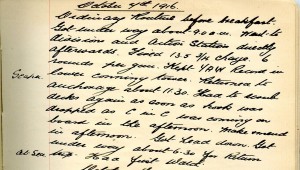 October 4th 1916.
Ordinary Routine before breakfast.
Got under way about 9.00 a.m. Went to
Divisions and Action Station directly
afterwards. Fired 13.5 & 4 charge. 6
rounds per gun. Kept Record in
Scapa. lower conning tower. Returned to
anchorage about 11.30. Had to scrub
decks again as soon as hook was
dropped as C in C was coming on
board in the afternoon. Make & mend
in afternoon. Got Head down. Got
under way about 6.30 for Return
At Sea. trip. Had First Watch.